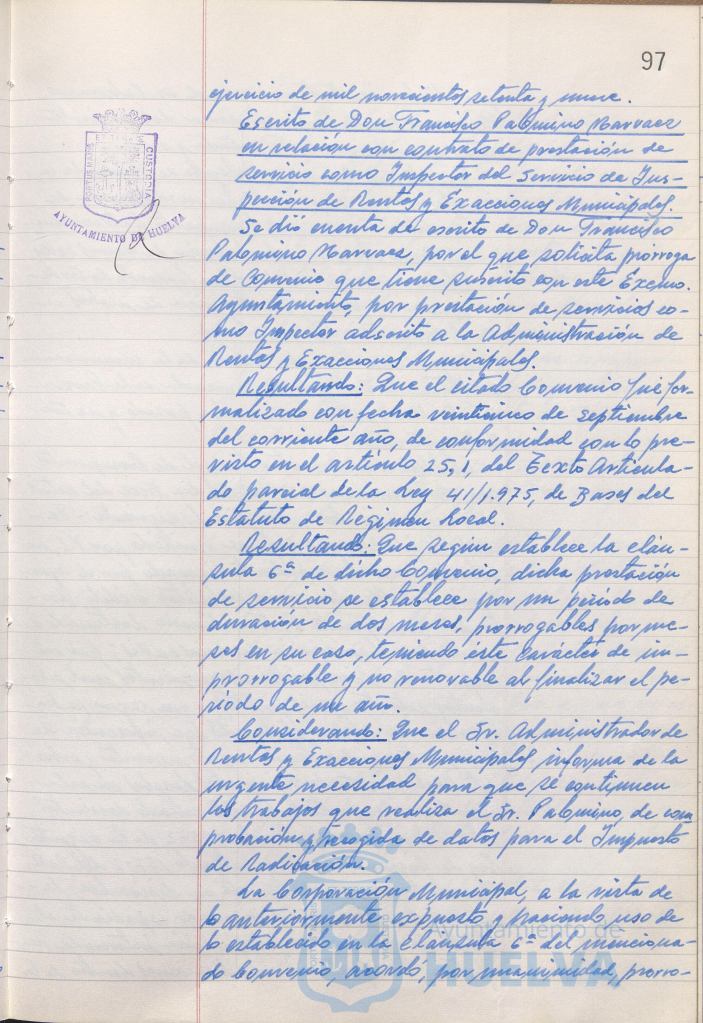 97
ejercicio de mil novecientos setenta y nueve.
Escrito de Don Francisco Palomino Narvaez
en relación con contrato de prestación de
servicio como Inspector del Servicio de Ins-
pección de Rentas y Exacciones Municipales.
Se dió cuenta de escrito de Don Francisco
Palomino Narvaez, por el que solicita prórroga
de Convenio que tiene suscrito con este Excmo.
Ayuntamiento, por prestación de servicios co-
mo Inspector adscrito a la Administración de
Rentas y Exacciones Municipales.
Resultando: Que el citado Convenio fué for-
malizado con fecha veinticinco de septiembre
del corriente año, de conformidad con lo pre-
visto en el artículo 25,1, del Texto Articula-
do parcial de la Ley 41/1.975, de Bases del
Estatuto de Régimen Local.
Resultando: Que según establece la cláu-
sula 6ª de dicho Convenio, dicha prestación
de servicio se establece por un período de
duración de dos meses, prorrogables por me-
ses en su caso, teniendo éste carácter de im-
prorrogable y no renovable al finalizar el pe-
ríodo de un año.
Considerando: Que el Sr. Administrador de
Rentas y Exacciones Municipales informa de la
urgente necesidad para que se continuen
los trabajos que realiza el Sr. Palomino, de com
probación y recogida de datos para el Impuesto
de Radicación.
La Corporación Municipal, a la vista de
lo anteriormente expuesto y haciendo uso de
lo establecido en la cláusula 6ª del menciona-
do Convenio, acordó, por unanimidad, prorro-
PORTUS MARIS
CUSTODIA
AYUNTAMIENTO DE HUELVA
Ayuntamiento de
HUELVA